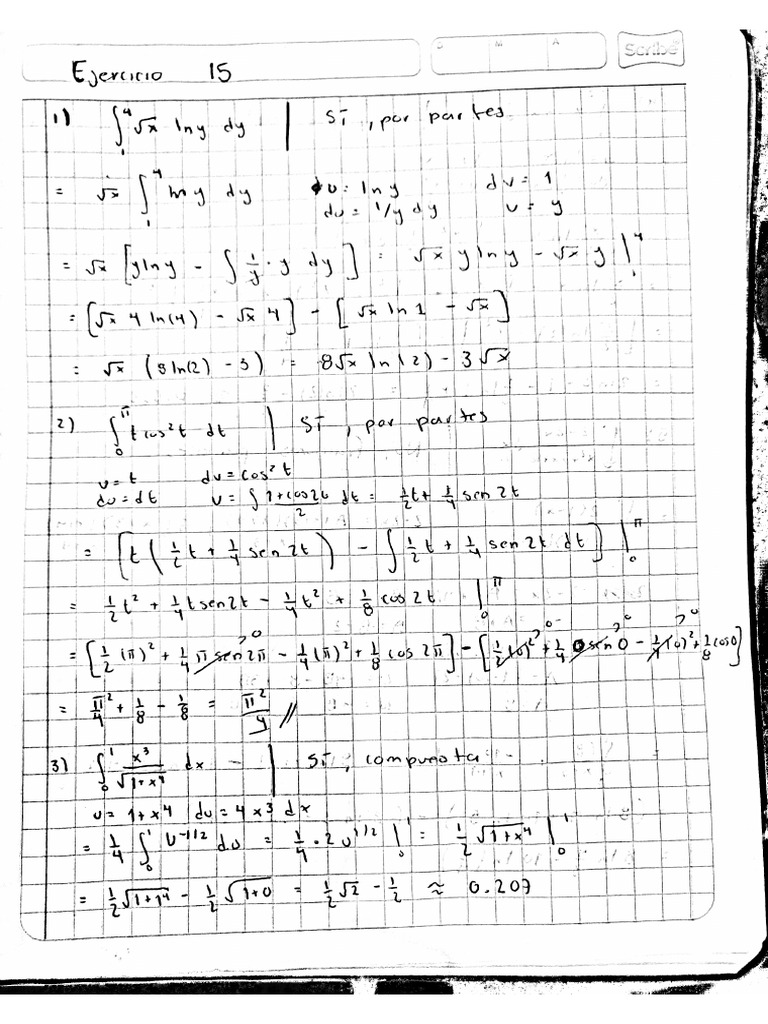 S M A Scribe
Ejercicio 15
1) ∫₁⁴ √x ln y dy | SI, por partes
= √x ∫₁⁴ ln y dy u = ln y dv = 1
du = 1/y dy v = y
= √x [y ln y - ∫ 1/y · y dy] = √x y ln y - √x y |₁⁴
= [√x 4 ln(4) - √x 4] - [√x ln 1 - √x]
= √x (8 ln(2) - 3) = 8√x ln(2) - 3√x
2) ∫₀^π t cos²t dt | SI, por partes
u = t dv = cos²t
du = dt v = ∫ (1+cos2t)/2 dt = 1/2 t + 1/4 sen 2t
= [t (1/2 t + 1/4 sen 2t) - ∫ 1/2 t + 1/4 sen 2t dt] |₀^π
= 1/2 t² + 1/4 t sen 2t - 1/4 t² + 1/8 cos 2t |₀^π
= [1/2 (π)² + 1/4 π sen 2π - 1/4 (π)² + 1/8 cos 2π] - [1/2 (0)² + 1/4 0 sen 0 - 1/4 (0)² + 1/8 cos 0]
= π²/4 + 1/8 - 1/8 = π²/4 //
3) ∫₀¹ x³/√(1+x⁴) dx | SI, compuesta
u = 1+x⁴ | du = 4x³ dx
= 1/4 ∫₀¹ u^(-1/2) du = 1/4 · 2 u^(1/2) |₀¹ = 1/2 √(1+x⁴) |₀¹
= 1/2 √(1+1⁴) - 1/2 √(1+0) = 1/2 √2 - 1/2 ≈ 0.207